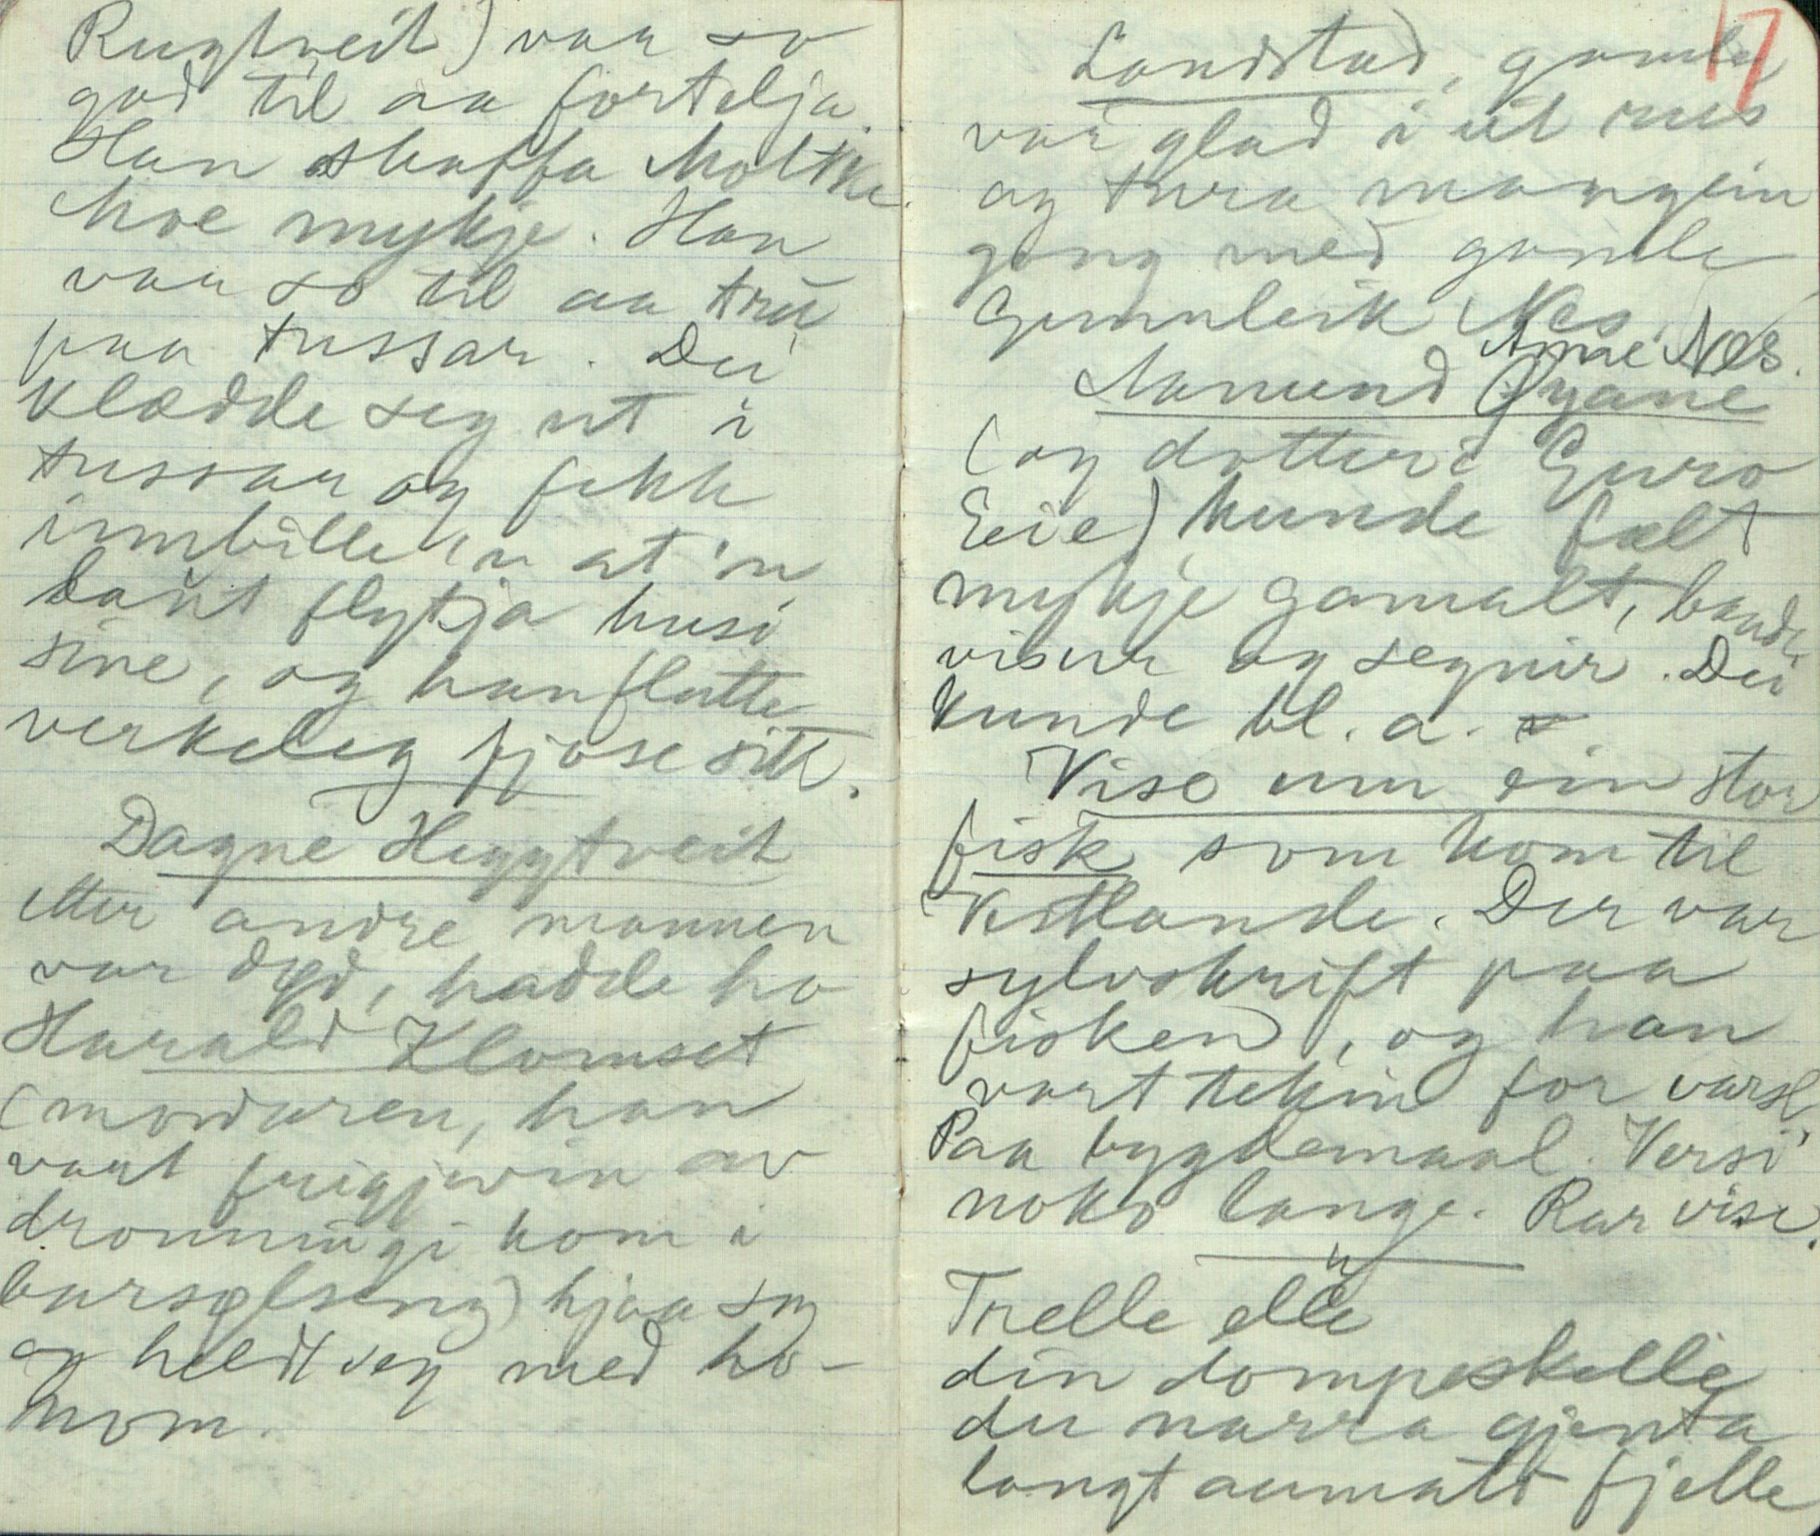 Rugtveit) var so
god til aa fortelja.
Han skaffa Moltke
Moe mykje. Han
var so til aa tru
paa tussar. Dei
klædde seg ut i
tussar og fekk
innbille 'n at 'n
laut flytja husi
sine, og han flutte
verkeleg fjøse sitt.
Dagne Heggtveit
etter andre mannen
var død, hadde ho
Harald Klomset
(mordaren, han
vart frigjevin av
dronningi kom i
barsølseng) hjaa seg
og heldt seg med ho-
nom.
17
Landstad, gamle
var glad i eit rus
og tura mangein
gong med gamle
Gunnleik Nes.
Anne Nes.
Aamund Øyane
(og dotter: Guro
Eeie) kunde fælt
mykje gamalt, baade
visur og segnir. Dei
kunde bl. a.
Viso um ein stor
fisk som kom til
Vestlande. Der var
sylvskrift paa
fisken, og han
vart tekin for varsl,
Paa bygdemaal. Versi
noko lange. Rar vise.
Trelle elle
din lompeskelle
du narra gjenta
langt aumalt fjelle